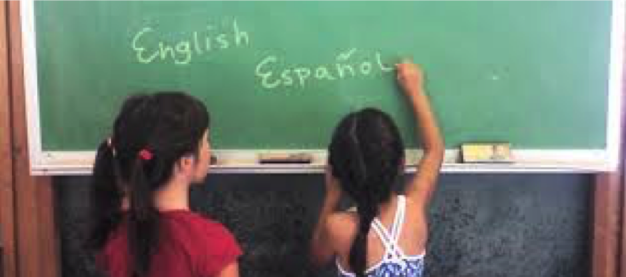 English
Español